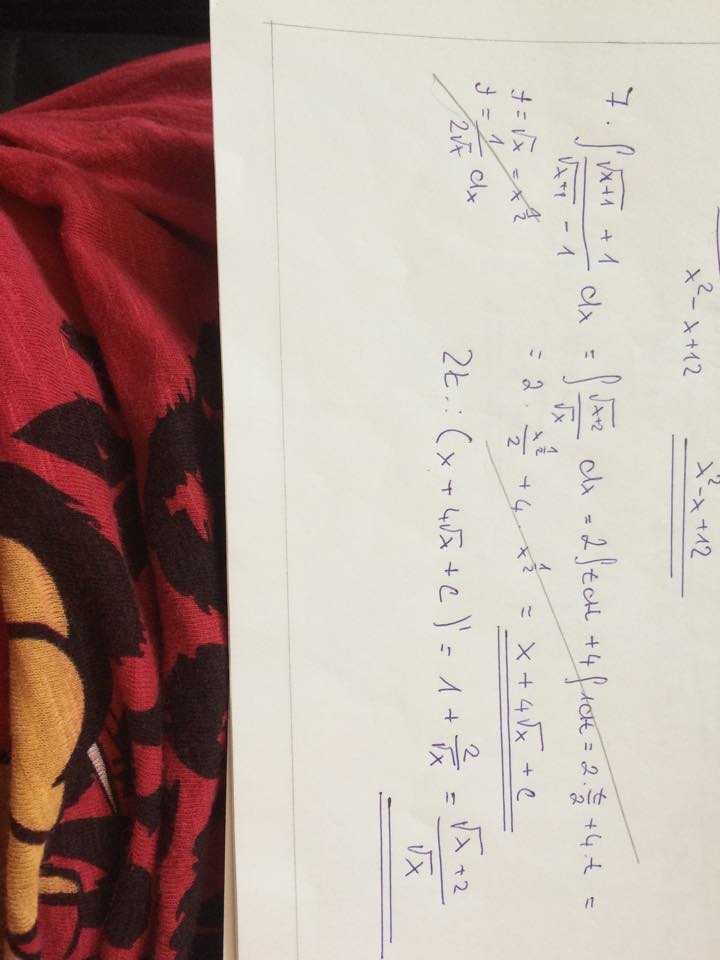 x² - x + 12    x² - x + 12
7. ∫ (√(x+1) + 1)/(√(x+1) - 1) dx = ∫ (√x+2)/√x dx = 2∫t dt + 4∫1 dt = 2 · t/2 + 4 · t =
t = √x = x^(1/2)    = 2 · x^(1/2)/2 + 4 · x^(1/2) = x + 4√x + c
t = 1/(2√x) dx
Zk.: (x + 4√x + c)' = 1 + 2/√x = (√x + 2)/√x